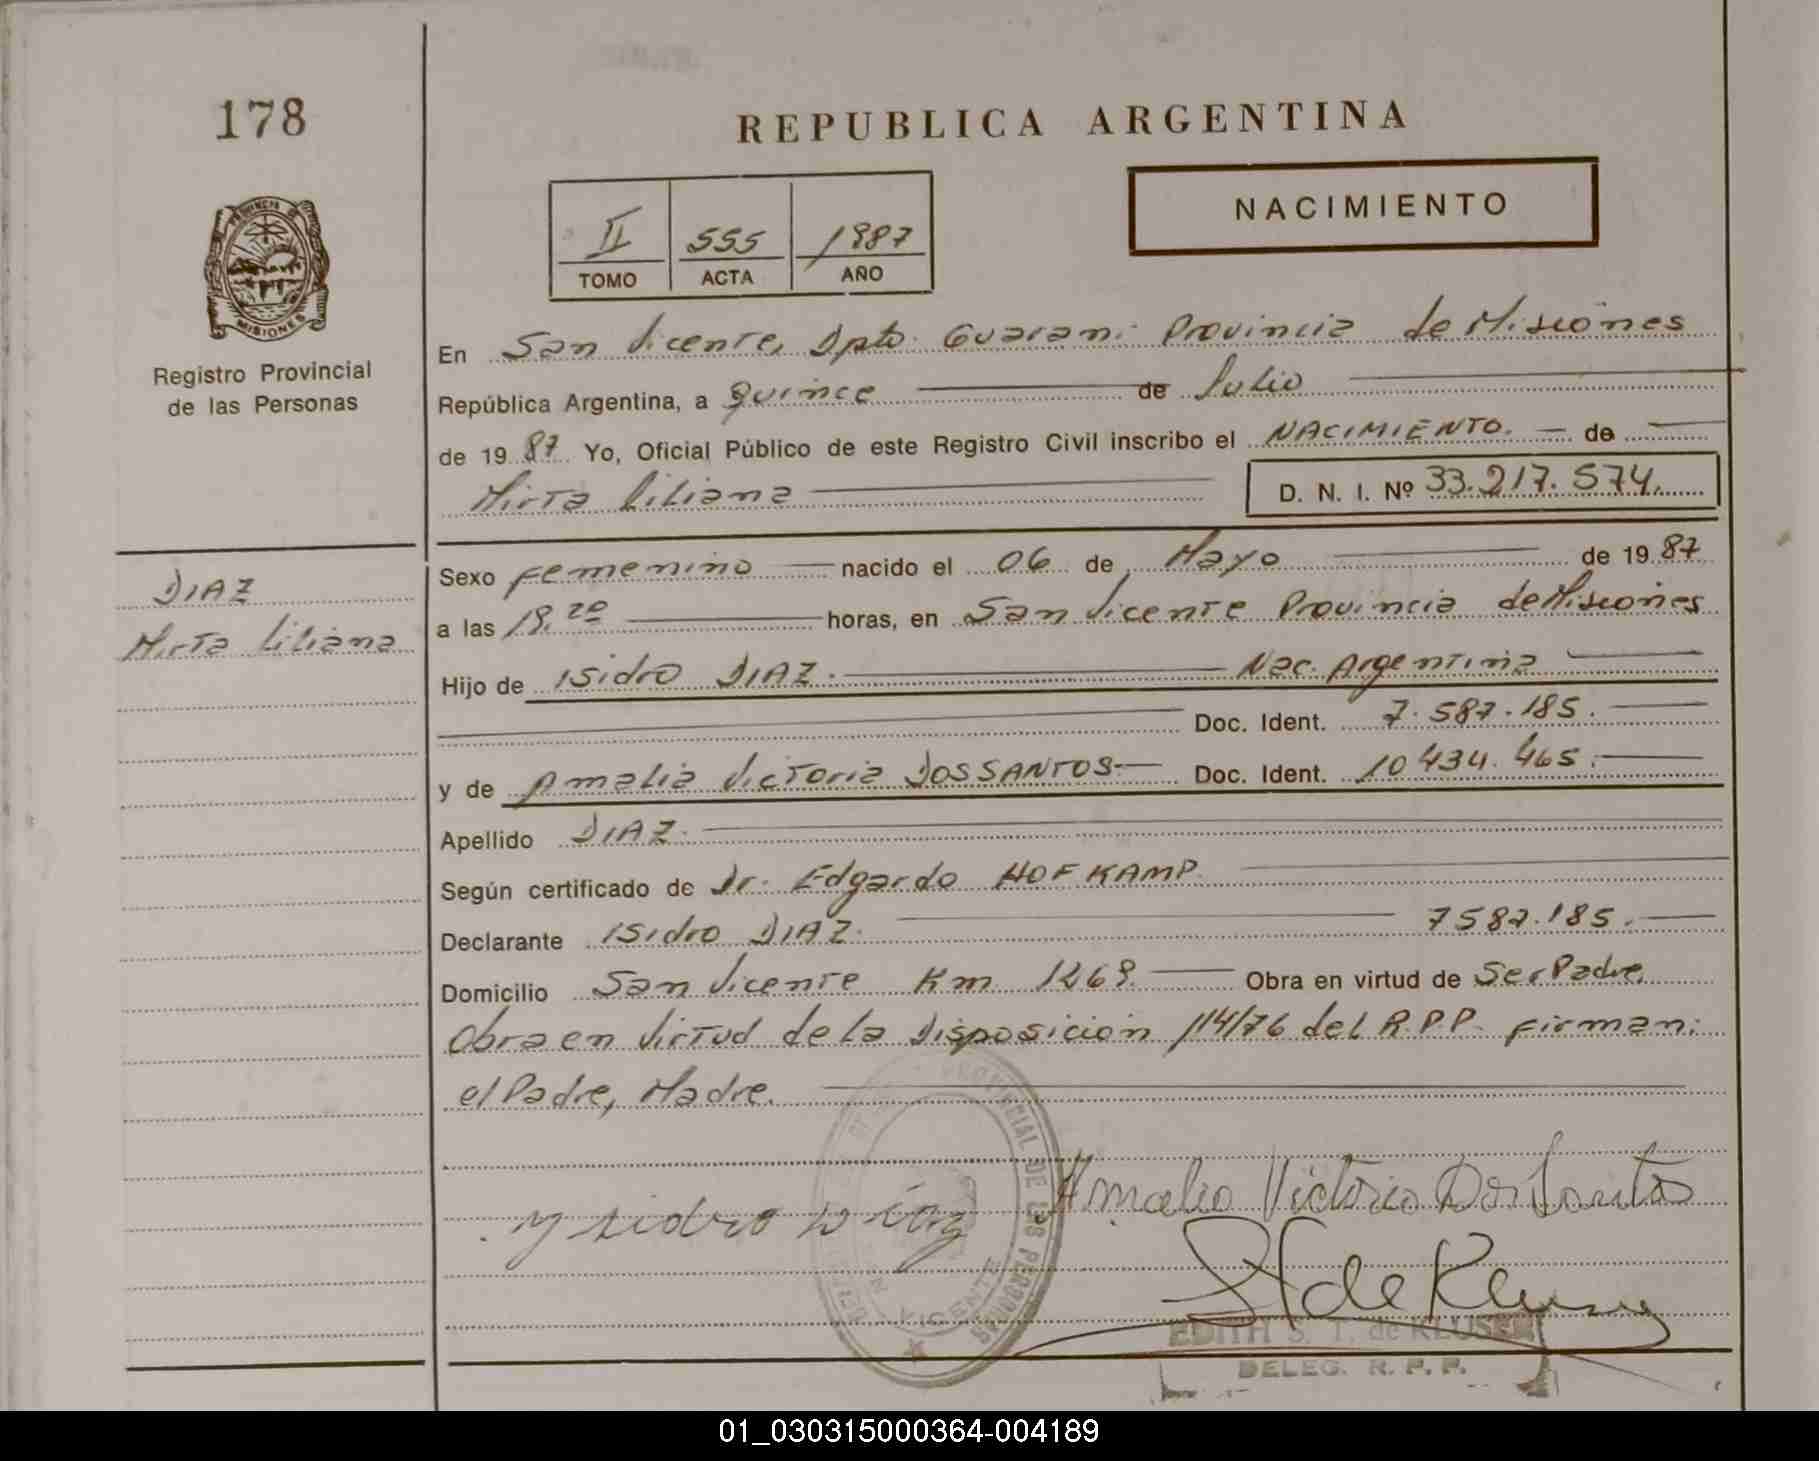 178
REPUBLICA ARGENTINA
NACIMIENTO
II 555 1987
TOMO ACTA AÑO
PROVINCIA DE
MISIONES
Registro Provincial
de las Personas
En San Vicente, Dpto. Guarani Provincia de Misiones
República Argentina, a quince de Julio
de 1987 Yo, Oficial Público de este Registro Civil inscribo el NACIMIENTO. de
Mirta Liliana D. N. I. Nº 33.217.574.
DIAZ
Mirta Liliana
Sexo femenino nacido el 06 de Mayo de 1987
a las 18,20 horas, en San Vicente Provincia de Misiones
Hijo de Isidro DIAZ. Nac. Argentina
Doc. Ident. 7.587.185.
y de Amalia Victoria DOSSANTOS Doc. Ident. 10.434.465.
Apellido DIAZ.
Según certificado de Dr. Edgardo HOFKAMP.
Declarante Isidro DIAZ. 7587.185.
Domicilio San Vicente Km 1269. Obra en virtud de Ser Padre
Obra en Virtud de la Disposición 114/76 del R.P.P. firman:
el Padre, Madre.
PROVINCIAL DE LAS PERSONAS
VICENTE
Ysidro Diaz
Amalia Victoria Dos Santos
EDITH S. T. de KLUSE
DELEG. R. P. P.
01_030315000364-004189